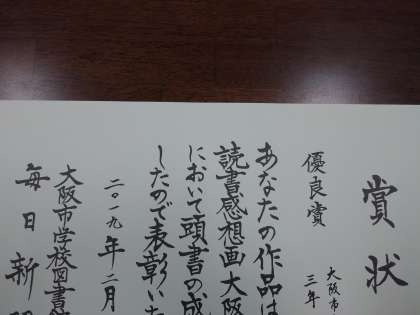 賞状
優良賞
大阪市
三年
あなたの作品は
読書感想画大阪
において頭書の成
したので表彰いた
二〇一九年二月
大阪市学校図書館
毎日新聞